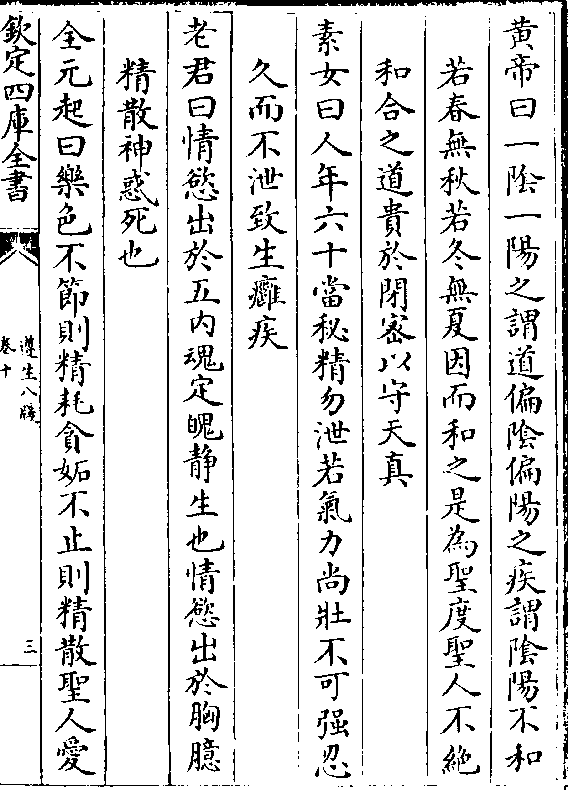 黄帝曰一隂一陽之謂道偏隂偏陽之疾謂隂陽不和
若春無秋若冬無夏因而和之是為聖度聖人不絶
和合之道貴於閉宻以守天真
素女曰人年六十當秘精勿泄若氣力尚壯不可强忍
久而不泄致生癰疾
老君曰情慾出於五内魂定魄静生也情慾出於胸臆
精散神惑死也
全元起曰樂色不節則精耗貪妬不止則精散聖人愛
欽定四庫全書
遵生八牋
卷十
三